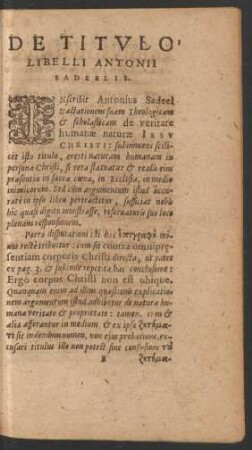 DE TITVLO
LIBELLI ANTONII
SADEELIS.
INscribit Antonius Sadeel
tractationem suam Theologicam
& scholasticam de veritate
humanæ naturæ IESV
CHRISTI: subinnuens scili-
cet isto titulo, everti naturam humanam in
persona Christi, si vera statuatur & realis eius
præsentia in sacra cœna, in Ecclesia, in medio
inimicorum. Sed cum argumentum istud accu-
ratè in ipso libro pertractetur, sufficiat nobis
hic quasi digito monstrasse, reservaturis suo loco
plenam responsionem.
Porrò disputationi isti hæc ἐπιγραφὴ mi-
nus rectè tribuitur: cum sit contra omnipræ-
sentiam corporis Christi directa, ut patet
ex pag. 3. & subinde repetita hac conclusione:
Ergò corpus Christi non est ubique.
Quanquam enim ad illam quæstionis explicatio-
nem argumentum istud adhibetur de natura hu-
manæ veritate & proprietate: tamen, cum &
alia afferantur in medium, & ex ipso ζητήμα-
τι sit indendum nomen, non ejus probatione, ex-
cusari titulus ille non potest sine confusione τοῦ
B ζητήμα-